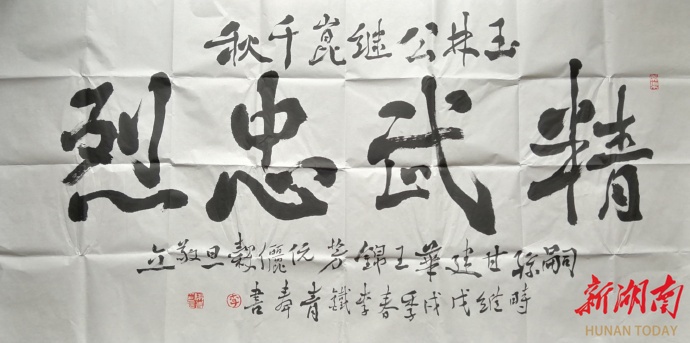 玉林公继崑千秋
精武忠烈
嗣孫甘建華王錦芳伉儷穀旦敬立
時維戊戌季春李鐵青奉書
新湖南
HUNAN TODAY